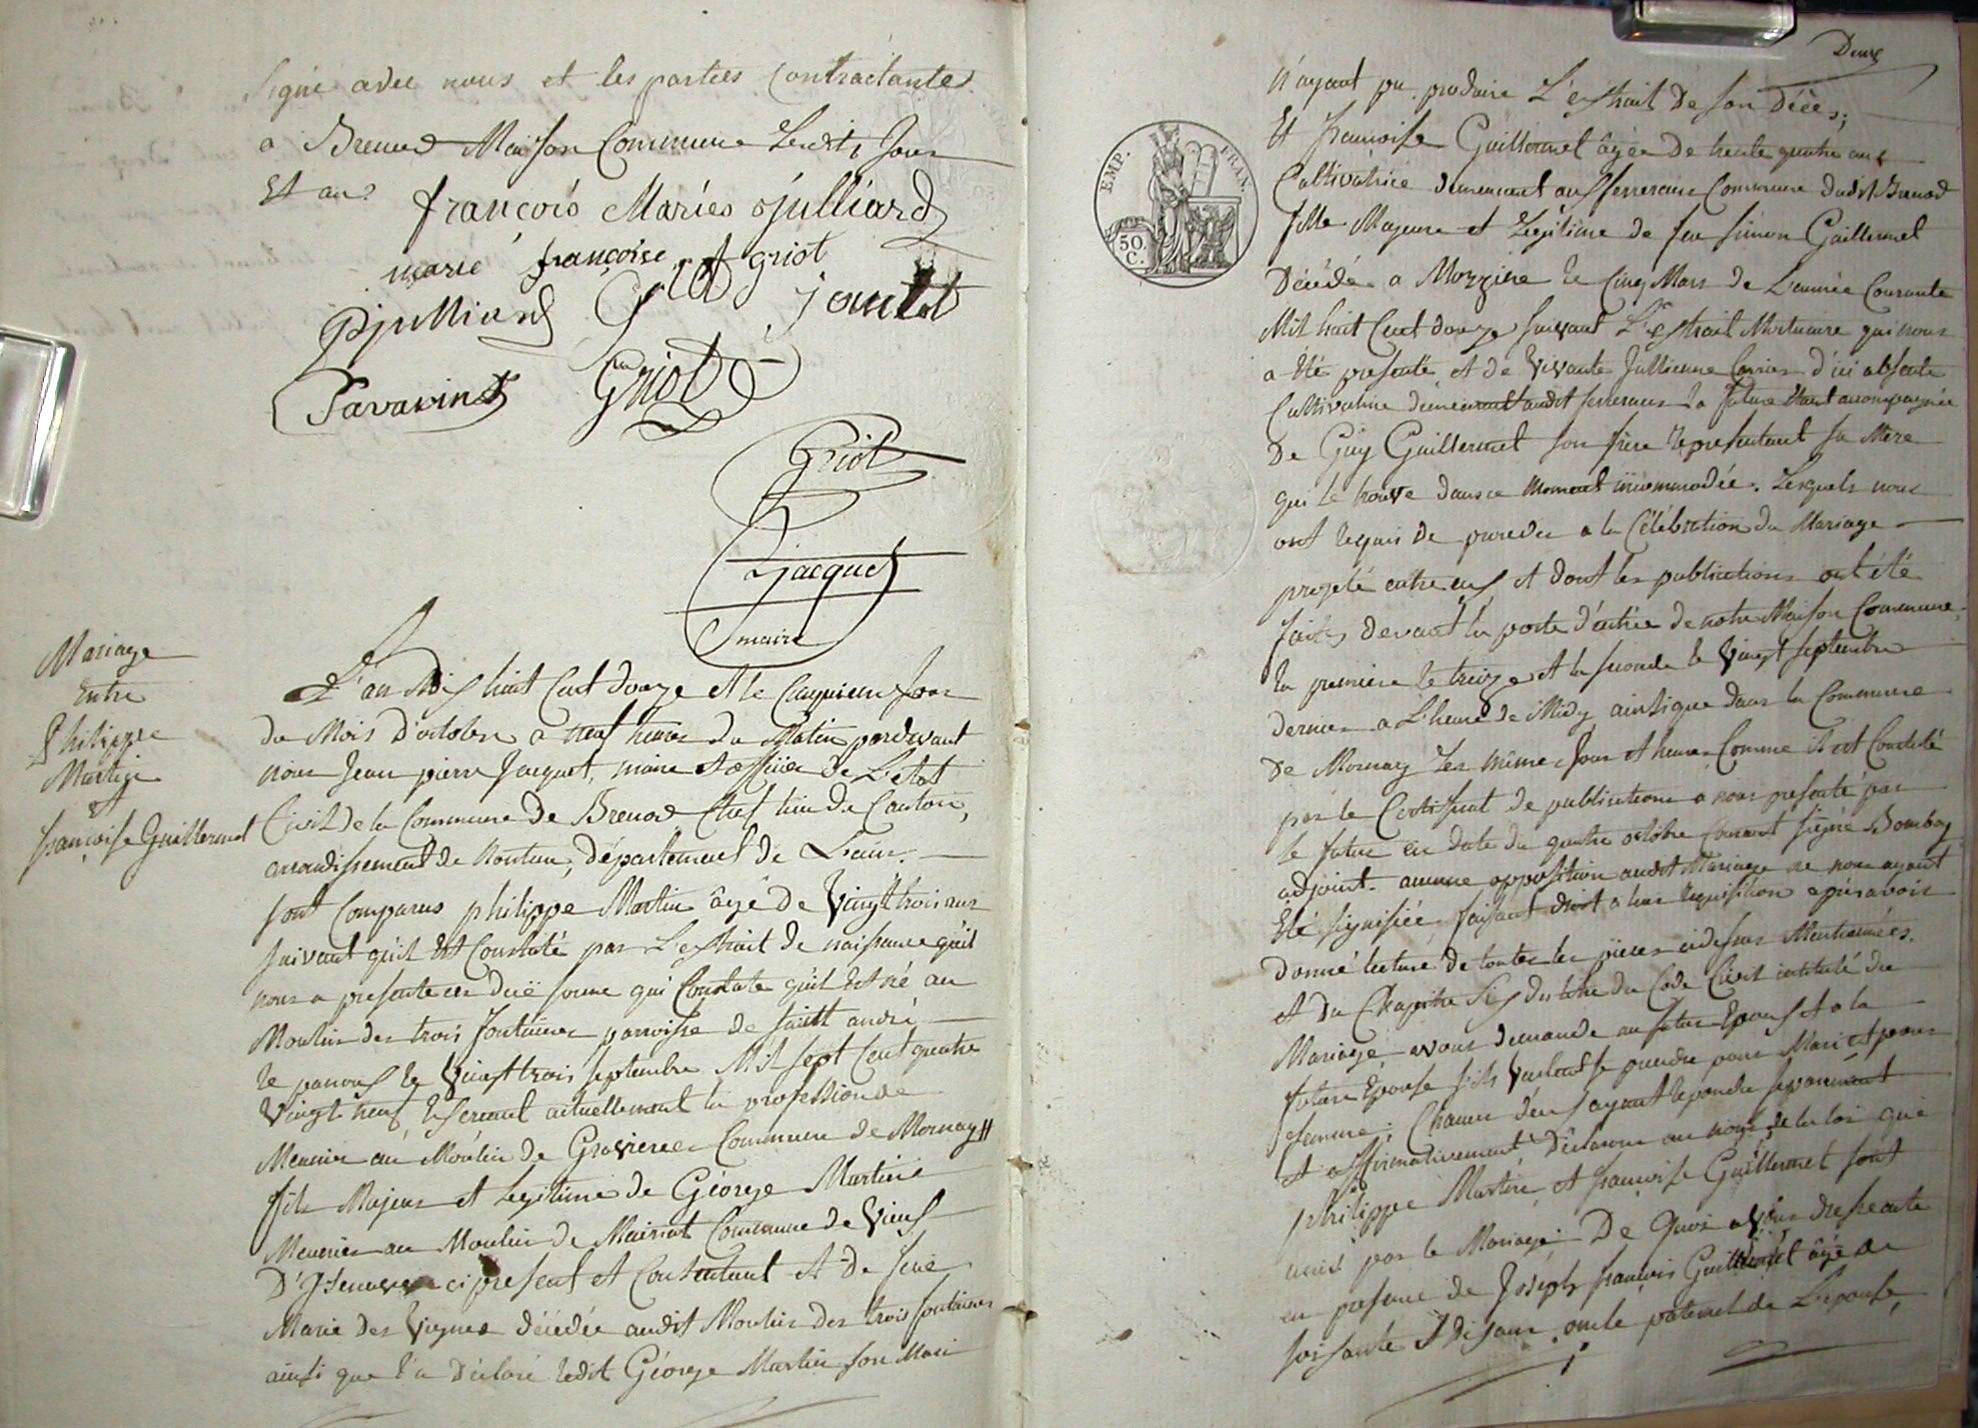 signé avec nous et les parties Contractantes
a Brenod Maison Commune Lesdits Jour
Et an
françois Mariés Julliard
marie françoise Griot
PJulliard Joutet
Savarin Griot
Griot
Jacquet
maire
Mariage
Entre
Philippe
Martin
et
françoise Guillermet
L'an Dix huit Cent douze et le Cinquieme Jour
du Mois D'octobre a neuf heures du Matin pardevant
nous Jean pierre Jacquet, maire et officier de L'etat
Civil de la Commune de Brenod Chef lieu de Canton,
arrondissement de Nantua, Département de L'ain.
sont Comparus philippe Martin âgé de Vingt trois ans
suivant qu'il Est Constaté par L'extrait de naissance qu'il
nous a presenté en duë forme qui Constate qu'il Est né au
Moulin des trois fontaines parroisse de saint andré
le panoux le Vingt trois septembre Mil sept Cent quatre
Vingt neuf, Exercant actuellement la profession de
Meunier au Moulin de Gravieres Commune de Mornay
fils Majeur et Legitime de George Martin
Meunier au Moulin de Mairiat Commune de Vieux
D'Isenave ci present et Consentant et De feue
Marie Des Vignes décédée audit Moulin des trois fontaines
ainsi que l'a Déclaré ledit George Martin son Mari
Deux
EMP. FRAN.
50 C.
n'ayant pu produire L'extrait de son Décès;
Et francoise Guillermet âgée De trente quatre ans
Cultivatrice demeurant aux Commune dudit Brenod
fille Majeure et Legitime de feu simon Guillermet
Décédé a Mozzine le Cinq Mars de L'année Courante
Mil huit Cent douze suivant L'extrait Mortuaire qui nous
a Eté presenté et de Vivante Jullienne Carrier d'ici absente
Cultivatrice demeurant audit la future Etant accompagnée
De Guy Guillermet son frère representant sa Mere
qui se trouve dans ce Moment incommodée. Lesquels nous
ont requis de proceder a la Célébration du Mariage
projeté entre eux et dont les publications ont été
faites devant la porte d'entrée de notre Maison Commune
la premiere le treize et la seconde le Vingt septembre
dernier a L'heure de Midy ainsi que dans la Commune
De Mornay Les même Jour et heure Comme il est Constaté
par le Certificat de publications a nous presenté par
le futur en date du quatre octobre Courant signé Bomboy
adjoint. aucune opposition audit Mariage ne nous ayant
Eté signifiée, faisant droit a leur requisition apres avoir
Donné lecture de toutes les pieces cidessus Mentionnées
et Du Chapitre Six du titre du Code Civil intitulé du
Mariage avons demandé au futur Epoux et a la
future Epouse s'ils Veulent se prendre pour Mari et pour
femme; Chacun d'eux ayant répondu separement
et affirmativement Déclarons au nom de la loi que
philippe Martin et françoise Guillermet sont
unis par le Mariage De Quoi avons dressé acte
en presence de Joseph françois Guillermet âgé de
soixante et dix ans, oncle paternel de L'epouse